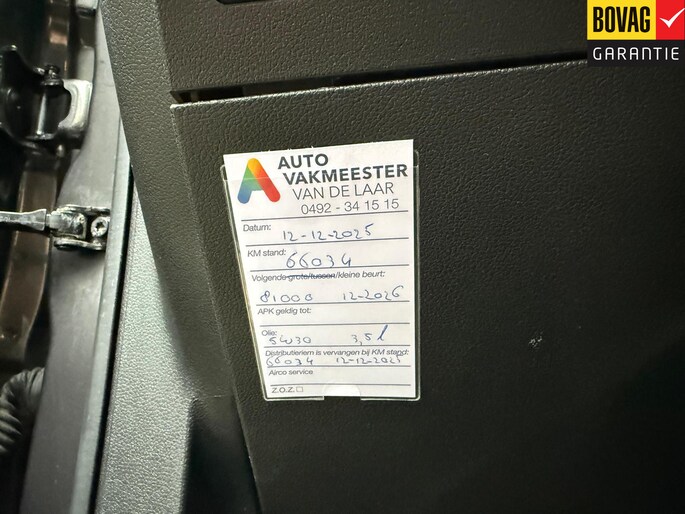 BOVAG
GARANTIE
AUTO
VAKMEESTER
VAN DE LAAR
0492 - 34 15 15
Datum: 12-12-2025
KM stand: 66034
Volgende grote/tussen/kleine beurt:
81000 12-2026
APK geldig tot:
Olie: 5W30 3,5 l
Distributieriem is vervangen bij KM stand:
66034 12-12-2025
Airco service
Z.O.Z.